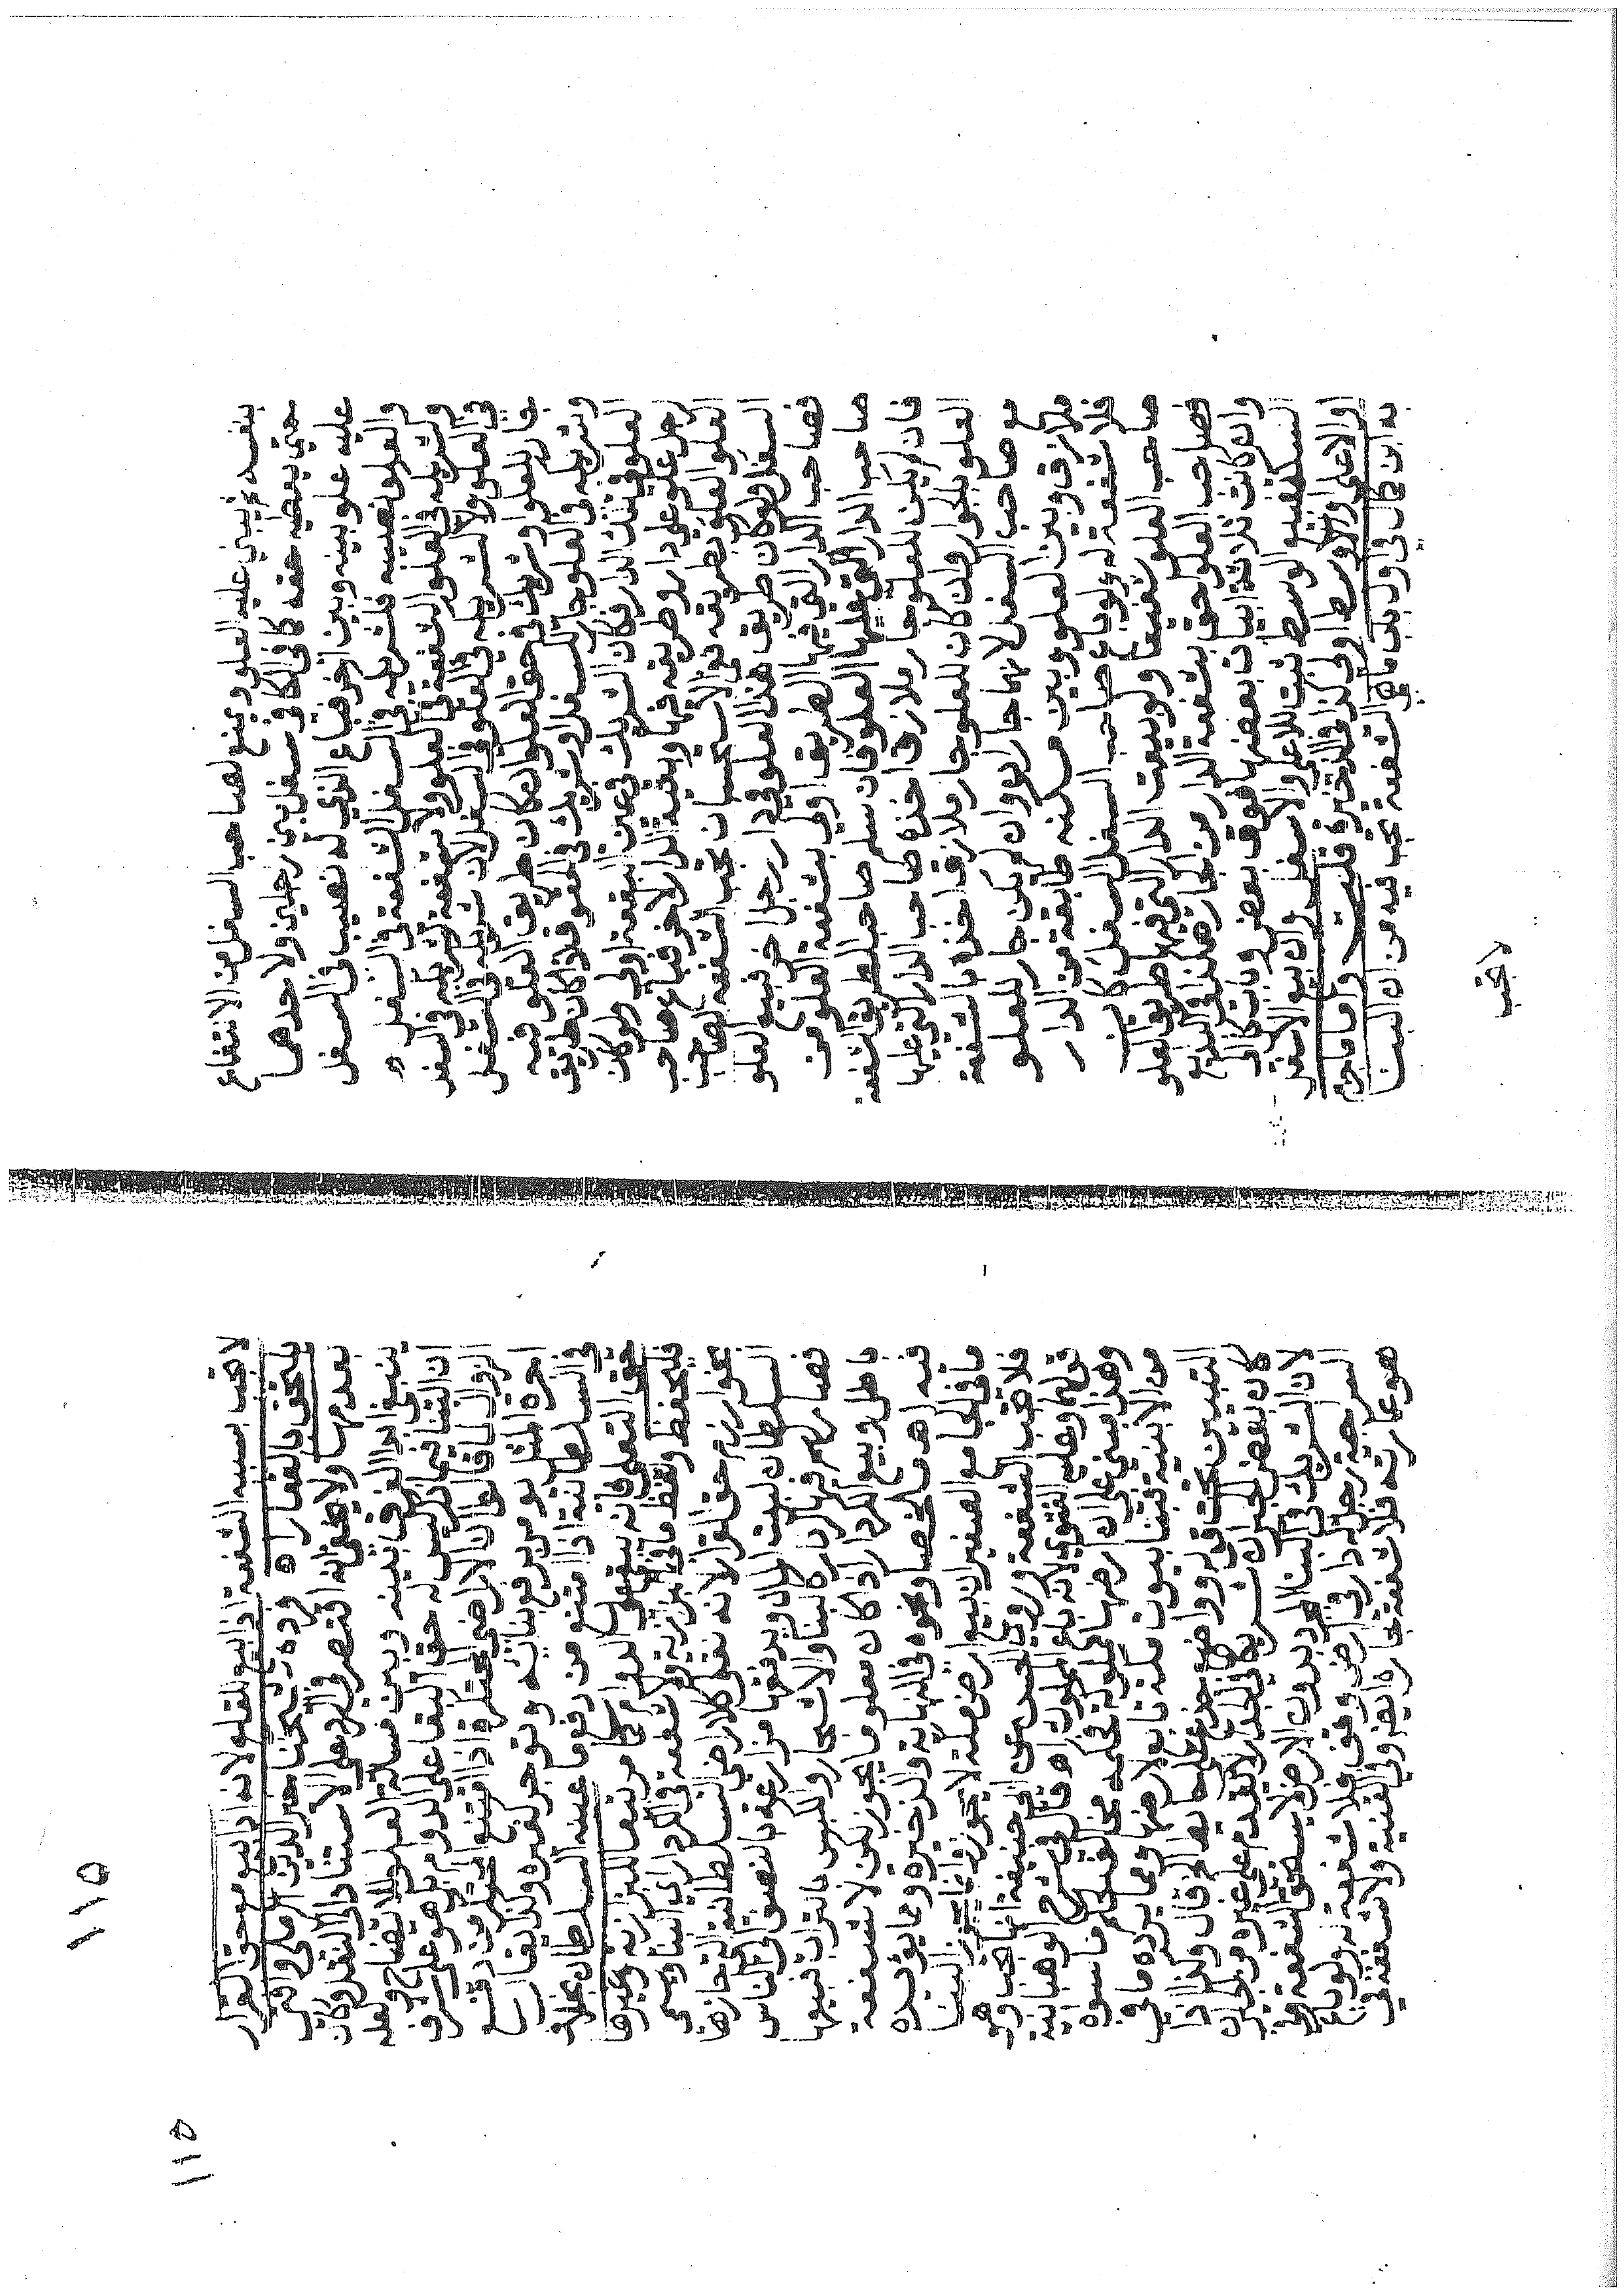 بنفسه ثم يبني عليه العلو ويمنع لصاحب السفل من الانتفاع
حتى يعطيه حقه كما في الكافي سفل بين رجلين ولاحدهما
عليه علو بينه وبين اخر فباع الذي له نصيب في السفل
والعلو نصيبه فلشريكه في السفل الشفعة في السفل
ولشريكه في العلو الشفعة في العلو ولا شفعة لشريكه في السفل
في العلو ولا لشريكه في العلو في السفل لان شريكه في السفل
جار للعلو او شريك في حقوق العلو ان كان طريق العلو فيه
وشريكه في العلو جار للسفل او شريك في الحقوق اذا كان طريق
العلو في تلك الدار فكان الشريك في عين البقعة اولى ولو كان
لرجل علو على دار وطريقه فيها وبقية الدار لاخر فباع صاحب
العلو العلو بطريقه ففي الاستحسان تجب الشفعة لصاحب
السفل ولو كان طريق هذا العلو في دار رجل اخر فبيع العلو
فصاحب الدار التي فيها الطريق اولى بشفعة العلو من
صاحب الدار التي عليها العلو فان سلم صاحب الطريق الشفعة
فان لم يكن للعلو جار ملازق اخذه صاحب الدار التي عليها
العلو بالجوار وان كان للعلو جار ملازق اخذه بالشفعة
مع صاحب السفل لانهما جاران وان لم يكن جار للعلو
ملازق وبين العلو وبين مسكنه طائفة من الدار
فلا شفعة له ولو باع صاحب السفل السفل كان
صاحب العلو شفيعا ولو بيعت الدار التي فيها طريق العلو
فصاحب العلو احق بشفعة الدار من الجار هكذا في البدائع
وان كانت ثلاثة ابيات بعضها فوق بعض وباب كل الى
السكة فبيع الوسط تثبت للاعلى والاسفل وان بيع الاسفل
او الاعلى والاوسط اولى كذا في الذخيرة قلت واما ما جزم
به ابن كمال في اول باب ما هي الشفعة تجب فيه من ان البنا
لا تجب
١١٥
١١٥
لا تجب بسببه الشفعة اذا بيع للقلع لانه اذا بيع مع حق القرار
يلحق بالعقار اه ورده شيخنا خير الدين الرملي وافتى
بعدمها ولا يخفى انه اقتصر في الرد على الاستناد الى النقل وكان
ينبغي ابدا الفرق بينه وبين مسألة العلو للايضاح ولعله
ان البنا فيما ذكر ليس له حق البقا على الدوام بل هو على شرف
الزوال لما قالوا ان الاراضي المحتكرة اذا امتنع المحتكر من دفع
اجرة المثل يومر برفع بنائه وتوجر لغيره وكذا يقال
في السلطانية اذا امتنع من دفع ما عينه السلطان بخلاف
حق التعلي فانه يبقى على الدوام كما مر نقلا للبزازية وغيرها
فليحفظ ولفظ ما في البزازية ولا شفعة في الكردار اي البنا ويسمى
بخوارزم حق القرار لانه نقلي كالاراضي السلطانية التي حازها
السلطان لبيت المال ويدفعها مزارعة بالنصف الى الناس
فصار لهم فيها كردار كالبنا والاشجار والكبس بالتراب فبيعها
باطل وبيع الكردار اذا كان معلوما يجوز لكن لا شفعة
فيه اه ملخصا ونحوه في النهاية والذخيرة ومما يؤيده
ما في الجامع الصغير ان بيع ارض مكة لا يجوز وانما يجوز البنا
فلا تجب الشفعة وروى الحسن عن ابي حنيفة انها تجب وهو
قولهما وعليه الفتوى لانه باع المملوك اه قال في شرح الوهبانية
وهذا مبني على ان ارضها مملوكة فحكمه مخالف لحكم ما سواه
من الابنية فبنا بيوت مكة تابع لارضها ومما يرده ما في
التبيين تحت قوله وواضع جذع على حائط الخ قال وكذا اذا
كان بعض الجيران شريكا في الجدار لا يقدم على غيره من الجيران
لان الشريك في البنا المجرد بدون الارض لا يستحق الشفعة وفي
السراجية رجل له دار في ارض وقف فلا شفعة له ولو باع
هو عمارته فلا شفعة لجاره ايضا وفي القنية ولا شفعة في